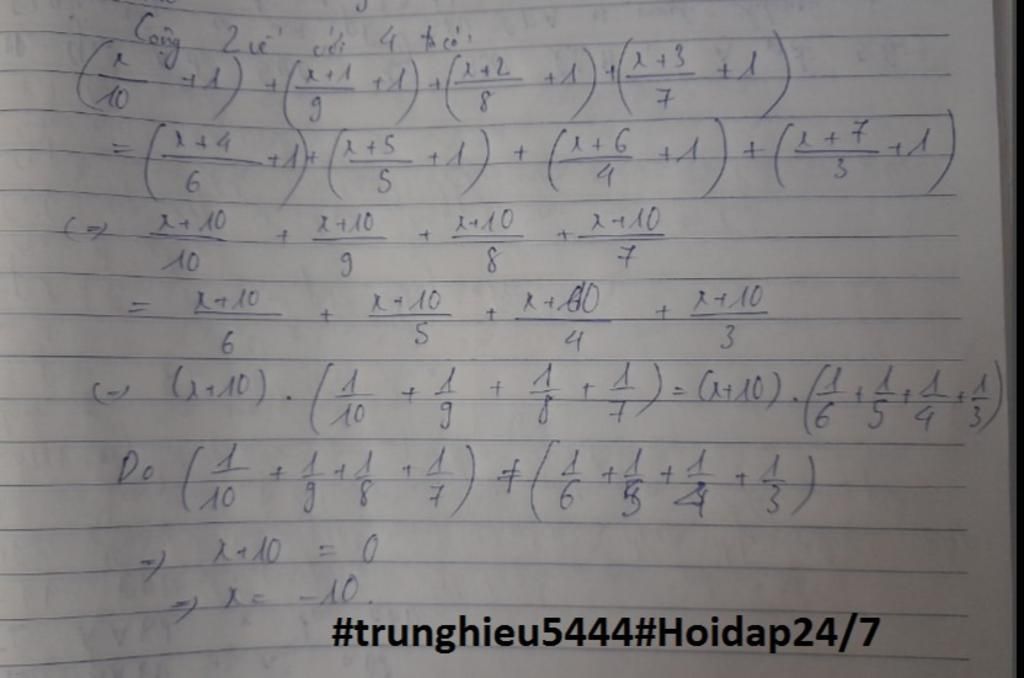 Cộng 2 vế với 4 ta có:
(x/10 + 1) + (x+1/9 + 1) + (x+2/8 + 1) + (x+3/7 + 1)
= (x+4/6 + 1) + (x+5/5 + 1) + (x+6/4 + 1) + (x+7/3 + 1)
(=) x+10/10 + x+10/9 + x+10/8 + x+10/7
= x+10/6 + x+10/5 + x+10/4 + x+10/3
(=) (x+10) . (1/10 + 1/9 + 1/8 + 1/7) = (x+10) . (1/6 + 1/5 + 1/4 + 1/3)
Do (1/10 + 1/9 + 1/8 + 1/7) ≠ (1/6 + 1/5 + 1/4 + 1/3)
=> x+10 = 0
=> x = -10.
#trunghieu5444#Hoidap24/7